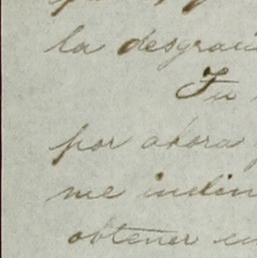 la desgraci
Tu
por ahora
me inclin
obtener